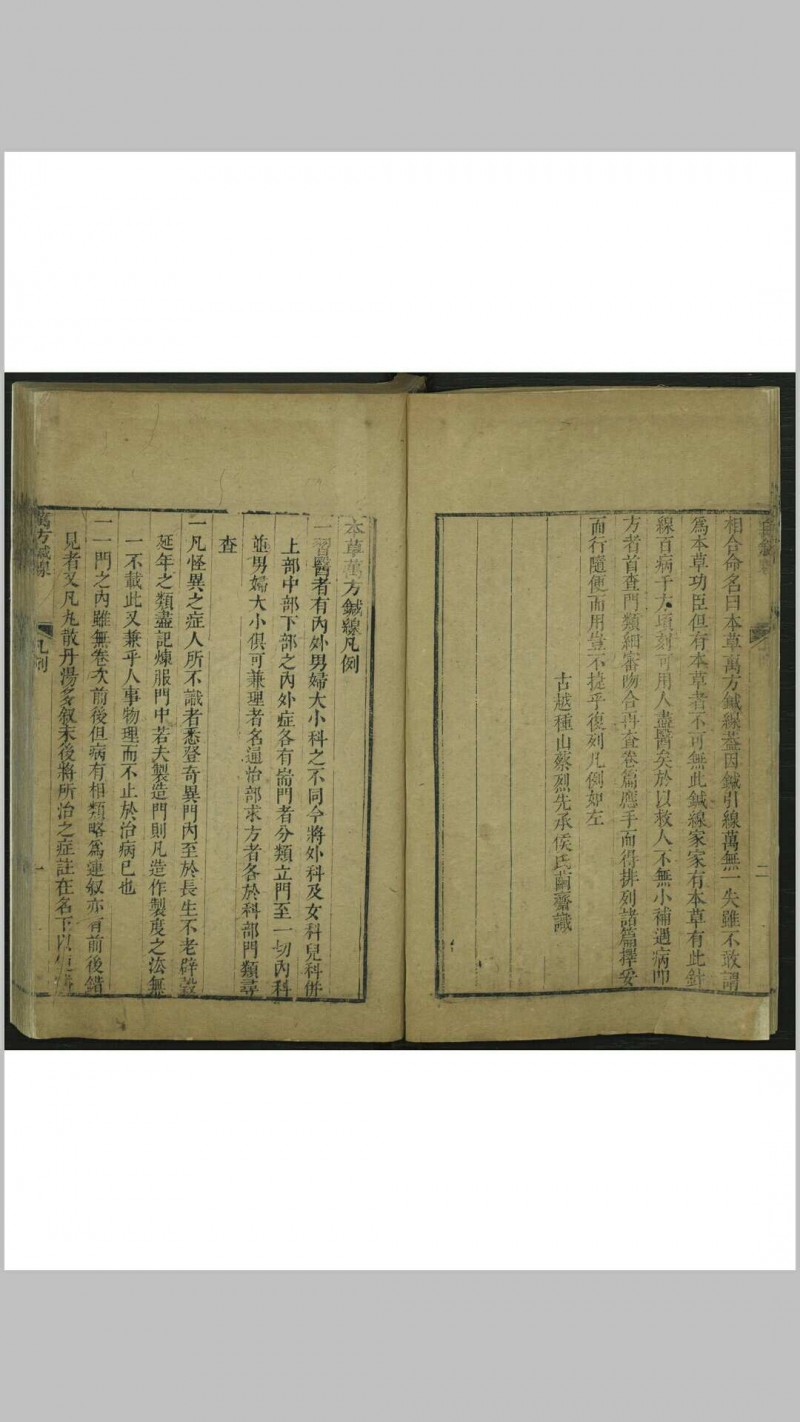 二
相合命名曰本草萬方鍼線葢因鍼引線萬無一失雖不敢謂
爲本草功臣但有本草者不可無此鍼線家家有本草有此針
線百病千方頃刻可用人盡醫矣於以救人不無小補遇病卽
方者首查門類細審吻合再查卷篇應手而得排列諸篇擇妥
而行隨便而用豈不捷乎復列凡例如左
古越種山蔡烈先承侯氏繭齋識
本草萬方鍼線凡例
一習醫者有內外男婦大小科之不同今將外科及女科兒科併
上部中部下部之內外症各有耑門者分類立門至一切內科
並男婦大小俱可兼理者名通治部求方者各於科部門類尋
查
一凡怪異之症人所不識者悉登奇異門內至於長生不老辟穀
延年之類盡記煉服門中若夫製造門則凡造作製度之法無
一不載此又兼乎人事物理而不止於治病已也
一一門之內雖無卷次前後但病有相類略爲連叙亦有前後錯
見者又凡丸散丹湯多叙末後將所治之症註在名下以
萬方鍼線
凡例
一